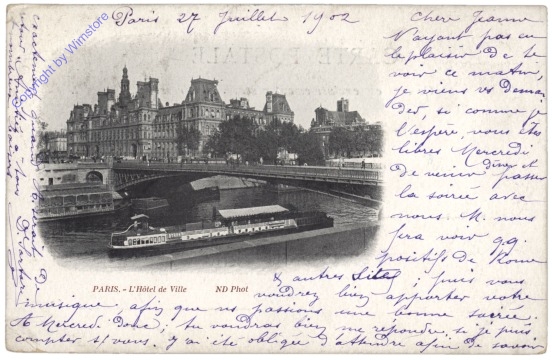 Paris 27 Juillet 1902
Chère Jeanne
N'ayant pas eu
le plaisir de te
voir ce matin,
je viens vs deman
der, si comme je
l'espère vous êtes
libres Mercredi
de venir passer
la soirée avec
nous. M. nous
fera voir qq.
positifs de Rome
& autres ; puis vous
voudrez bien apporter votre
musique afin que ns passions une bonne soirée.
A Mercredi donc, tu voudras bien me répondre si je puis
compter s/ vous. J'ai été obligée d'attendre afin de savoir
CARTE POSTALE
PARIS. - L'Hôtel de Ville ND Phot
Copyright by Wimstore